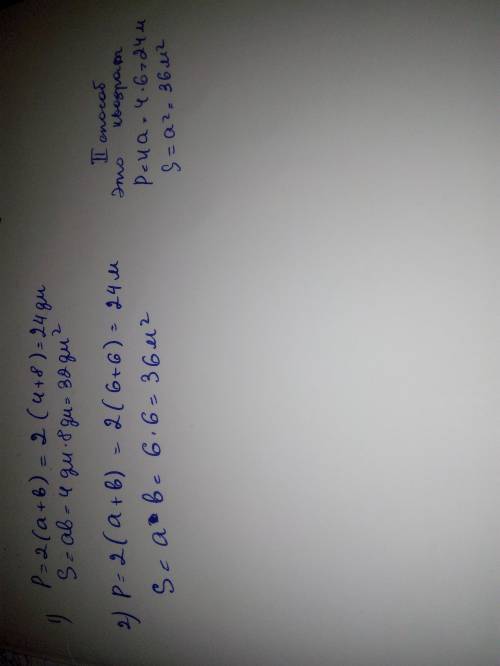 1) P = 2(a+b) = 2(4+8) = 24 дм
S = ab = 4 дм·8 дм = 32 дм²
2) P = 2(a+b) = 2(6+6) = 24 м
S = a·b = 6·6 = 36 м²
II способ
это квадрат
P = 4a = 4·6 = 24 м
S = a² = 36 м²